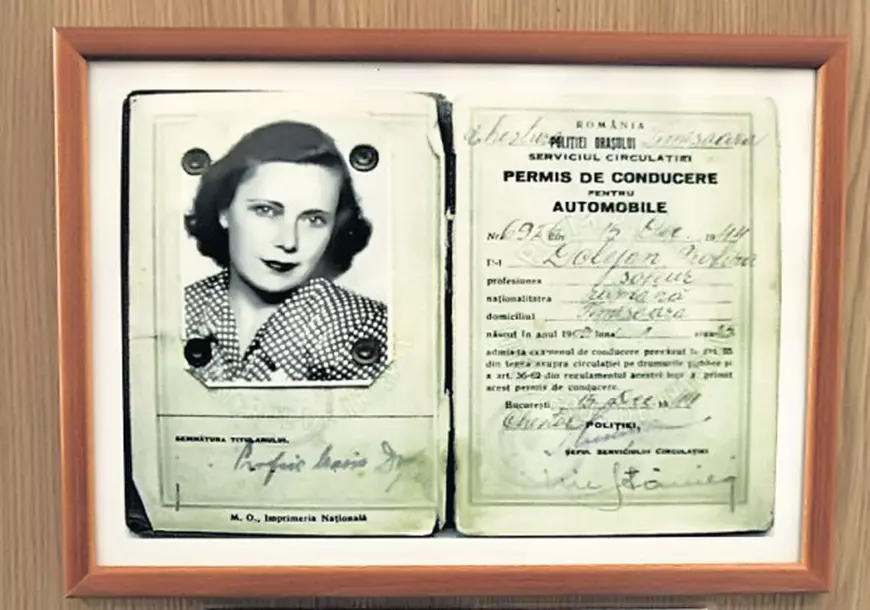 SEMNĂTURA TITULARULUI,
M. O., Imprimeria Națională
ROMÂNIA
POLIȚIEI ORAȘULUI Timișoara
SERVICIUL CIRCULAȚIEI
PERMIS DE CONDUCERE
PENTRU
AUTOMOBILE
Nr. din 15 Dec. 1944
profesiunea șofeur
naționalitatea română
domiciliul Timișoara
născut în anul luna
admis la examenul de conducere prevăzut la art. 35
din legea asupra circulației pe drumurile publice și
a art. 36-62 din regulamentul acestei legi a primit
acest permis de conducere.
București, 15 Dec 1944
Chestor POLIȚIEI,
ȘEFUL SERVICIULUI CIRCULAȚIEI